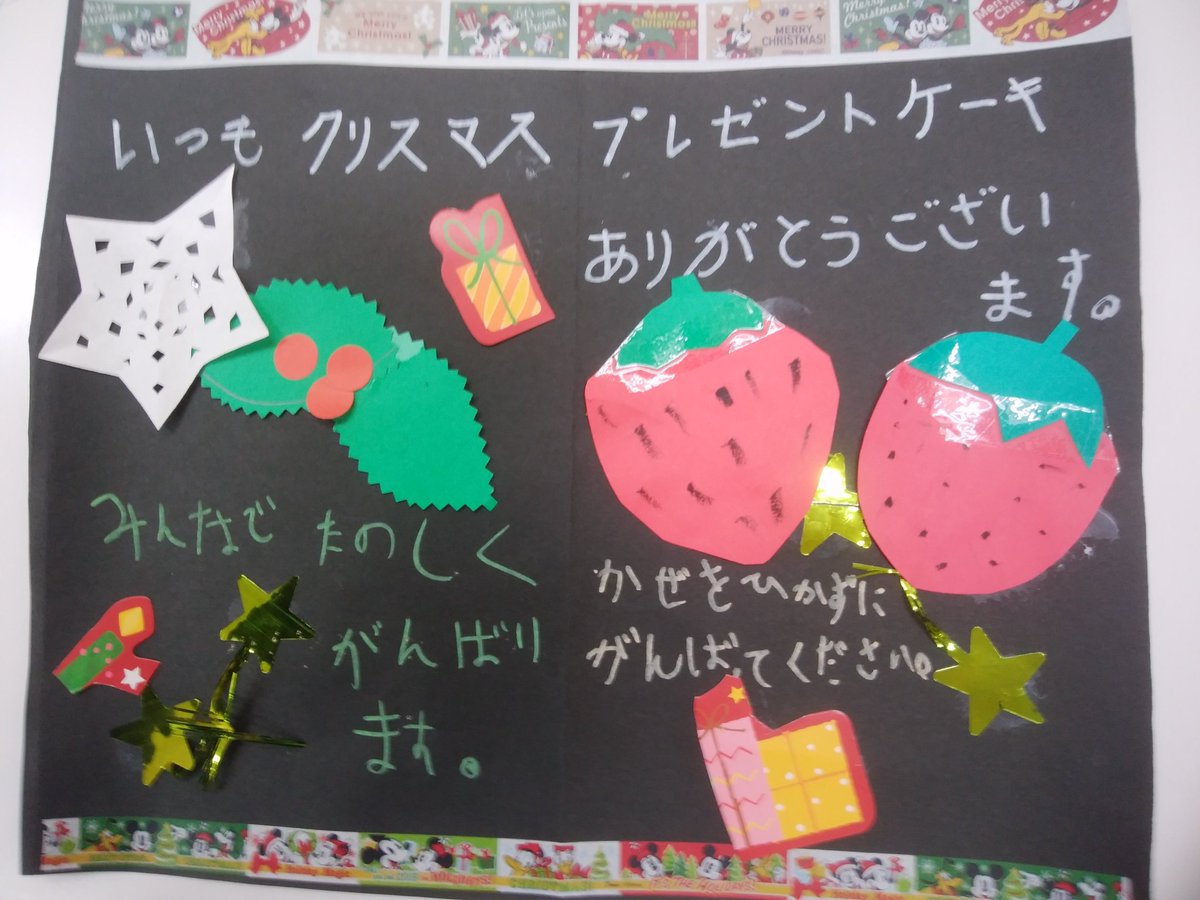 Merry Christmas!
Merry Christmas!
Merry Christmas!
Let's open Presents
MERRY CHRISTMAS!
MERRY CHRISTMAS!
Merry Christmas!
Merry Christmas!
いつも クリスマス プレゼントケーキ
ありがとうござい
ます。
みんなで たのしく
がんばり
ます。
かぜをひかずに
がんばってください。